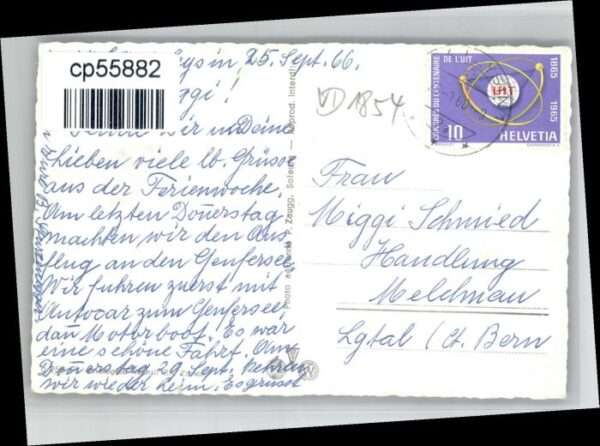 cp55882
in, 25. Sept. 66.
ggi!
wir und Deine
Lieben viele lb. Grüsse
aus der Ferienwoche.
Am letzten Donerstag
machten wir den Aus
flug an den Genfersee
Wir fuhren zuerst mit
Autocar zum Genfersee
dan Motorboot. Es war
eine schöne Fahrt. Am
Donerstag 29. Sept. kehren
wir wieder heim. Es grüsst
P. Zaugg, Soleure — Reprod. Interdite
VD 1854
CONGRÈS DU CENTENAIRE
DE L'UIT
1865
1965
UIT
10 HELVETIA
Frau
Miggi Schmied
Handlung
Melchnau
Lgtal (Ct. Bern